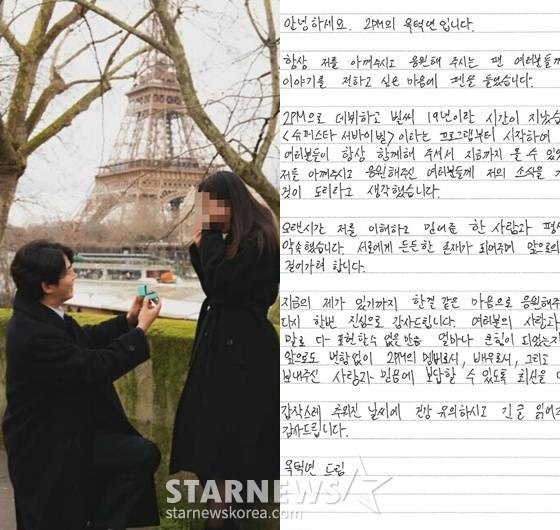 안녕하세요. 2PM의 옥택연입니다.
항상 저를 아껴주시고 응원해 주시는 팬 여러분들께
이야기를 전하고 싶은 마음에 펜을 들었습니다.
2PM으로 데뷔하고 벌써 19년이란 시간이 지났습
<슈퍼스타 서바이벌>이라는 프로그램부터 시작하여
여러분들이 항상 함께해 주셔서 지금까지 올 수 있었
저를 아껴주시고 응원해주신 여러분들께 저의 소식을
것이 도리라고 생각했습니다.
오랜시간 저를 이해하고 믿어준 한 사람과 평생
약속했습니다. 서로에게 든든한 존재가 되어주며 앞으로의
걸어가려 합니다.
지금의 제가 있기까지 한결 같은 마음으로 응원해주
다시 한번 진심으로 감사드립니다. 여러분의 사랑과
말로 다 표현할수 없을 만큼 얼마나 큰힘이 되었는지
앞으로도 변함없이 2PM의 멤버로서, 배우로서, 그리고
보내주신 사랑과 믿음에 보답할 수 있도록 최선을 다
갑작스레 추워진 날씨에 건강 유의하시고 긴글 읽어주
감사드립니다.
옥택연 드림
STARNEWS
starnewskorea.com